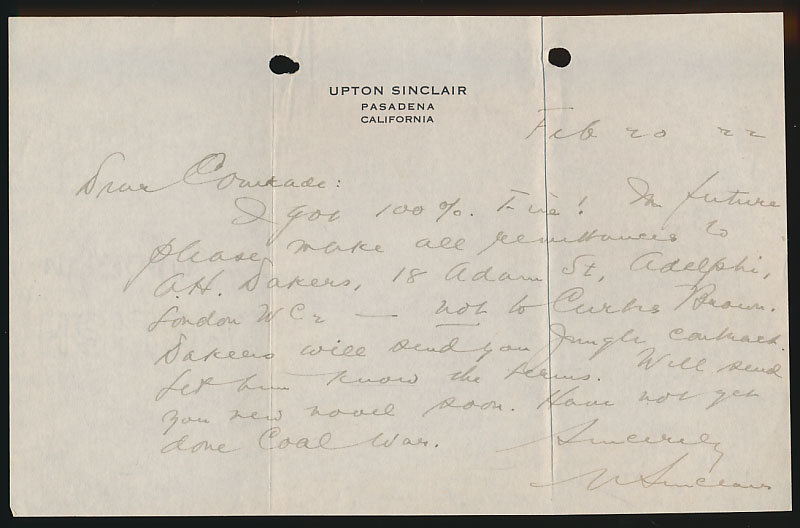 UPTON SINCLAIR
PASADENA
CALIFORNIA
Feb 20 22
Dear Comrade:
I got 100%. Fine! In future
please make all remittances to
A.H. Dakers, 18 Adam St, Adelphi,
London WC2 — not to Curtis Brown.
Dakers will send you Jungle contract.
Let him know the terms. Will send
you new novel soon. Have not yet
done Coal War.
Sincerely
U Sinclair